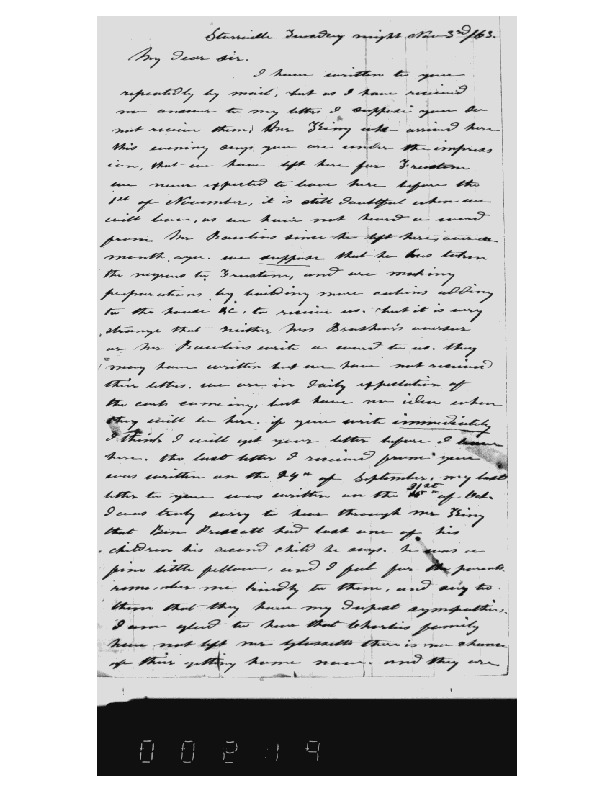 Tuesday night Nov 3rd /63.
My dear sir.
I have written to you
repeatedly by mail, but as I have received
no answer to my letters I suppose you do
not receive them; Mr King who arrived here
this evening says you are under the impress
ion, that we have left here for
we never expected to leave here before the
1st of November, it is still doubtful when we
will leave, as we have not heard a word
from Mr since he left here over a
month ago. we suppose that he has taken
the negroes to and are making
preparations by building more cabins adding
to the house &c. to receive us. but it is very
strange that neither Mrs
or Mr write a word to us. they
may have written but we have not received
their letters. we are in daily expectation of
the carts coming, but have no idea when
they will be here. if you write immediately
I think I will get your letter before I leave
here. the last letter I received from you
was written on the 24th of September, my last
letter to you was written on the 21st of Oct.
I was truly sorry to hear through Mr King
that Ben Prescott had lost one of his
children his second child he says. he was a
fine little fellow, and I feel for the parents
remember me kindly to them, and say to
them that they have my deepest sympathies.
I am glad to hear that Charlie's family
have not left there is no chance
of their getting home now. and they are
00219